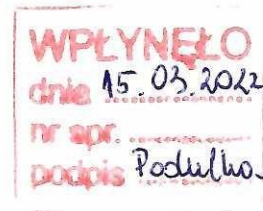 WPŁYNĘŁO
dnia 15.03.2022
nr spr. ..............
podpis Podulka.